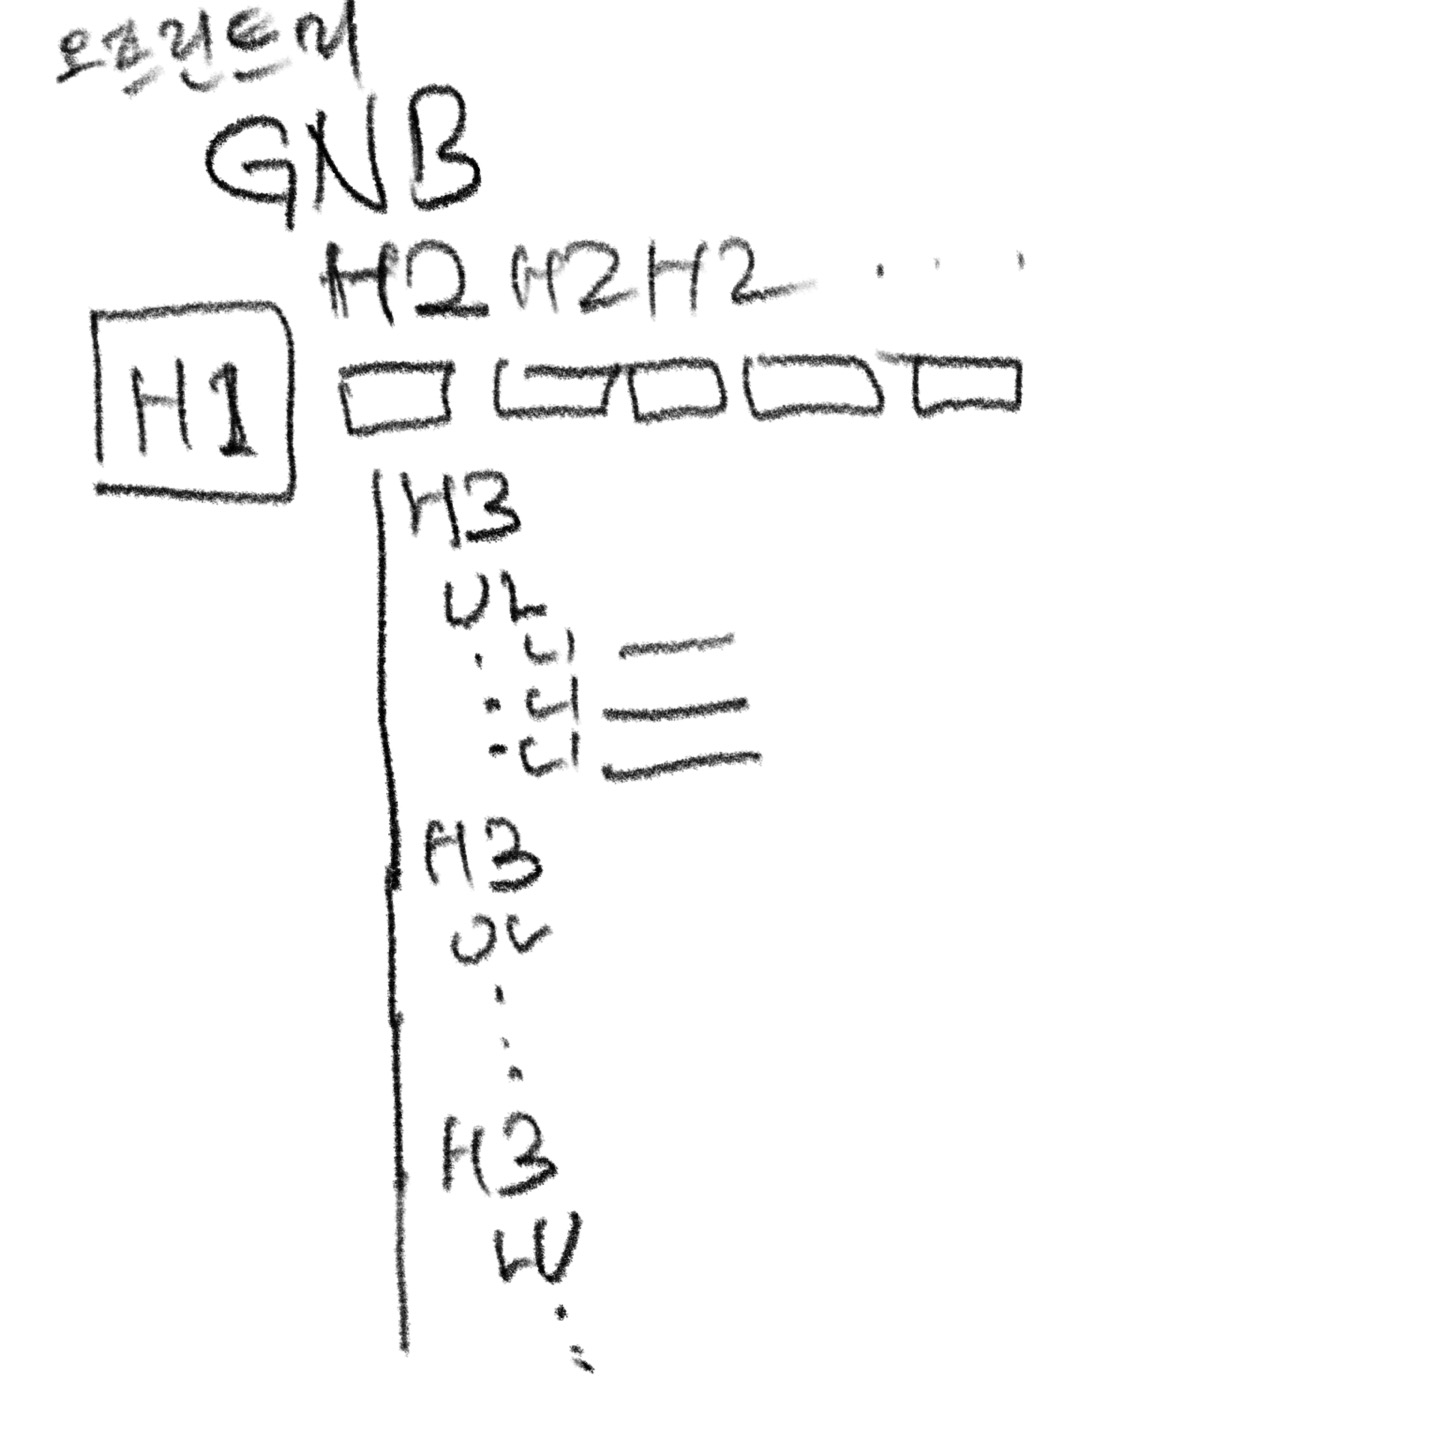 오프린트미
GNB
H2 H2 H2 ...
H1
H3
UL
· LI
· LI
· LI
H3
UL
H3
LU